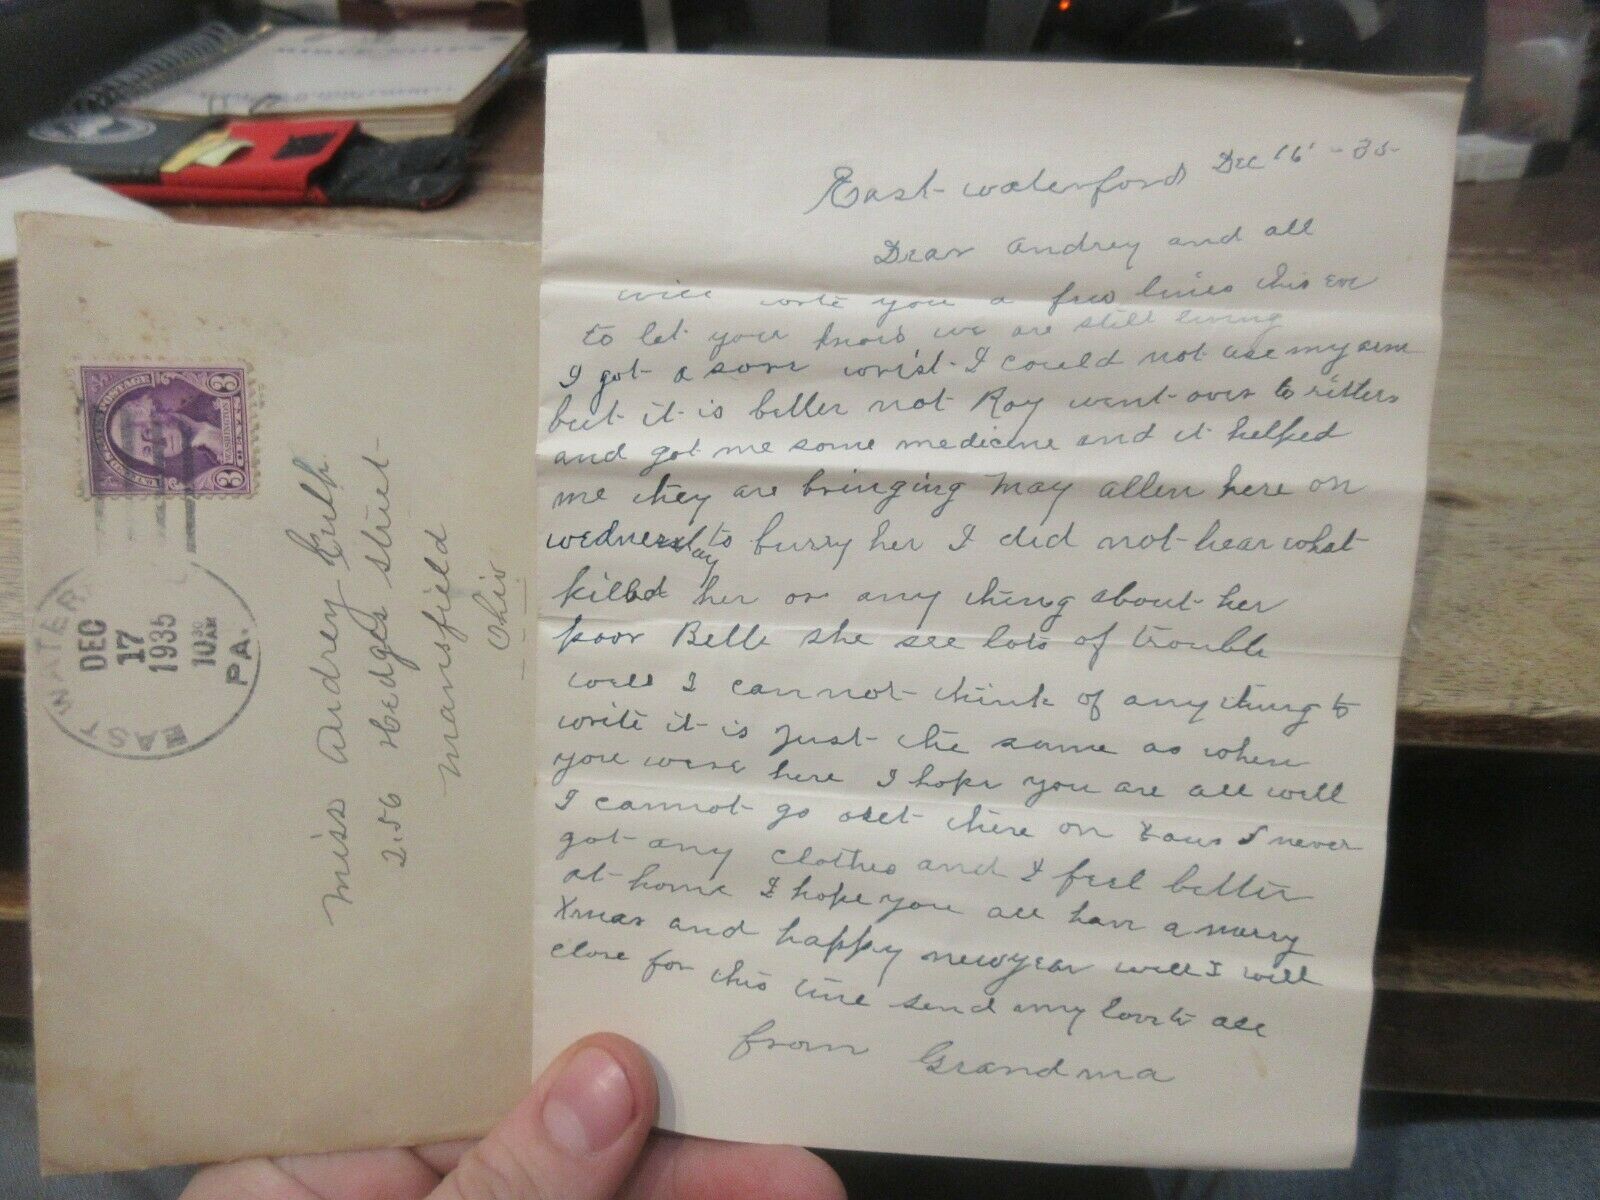 East Waterford Dec 16 - 35
Dear Audrey and all
will write you a few lines this eve
to let you know we are still living
I got a sore wrist I could not use my arm
but it is better not Roy went over to ritters
and got me some medicine and it helped
me they are bringing May Allen here on
wednesday to burry her I did not hear what
killed her or any thing about her
poor Belle she see lots of trouble
well I cannot think of any thing to
write it is just the same as when
you were here I hope you are all well
I cannot go out there on Xmas I never
got any clothes and I feel better
at home I hope you all have a merry
Xmas and happy newyear well I will
close for this time send my love to all
from Grandma
Miss Audrey
256 Hedges Street
Mansfield
Ohio
EAST WATER
DEC
17
1935
10 30
AM
PA.
POSTAGE
WASHINGTON
3 3